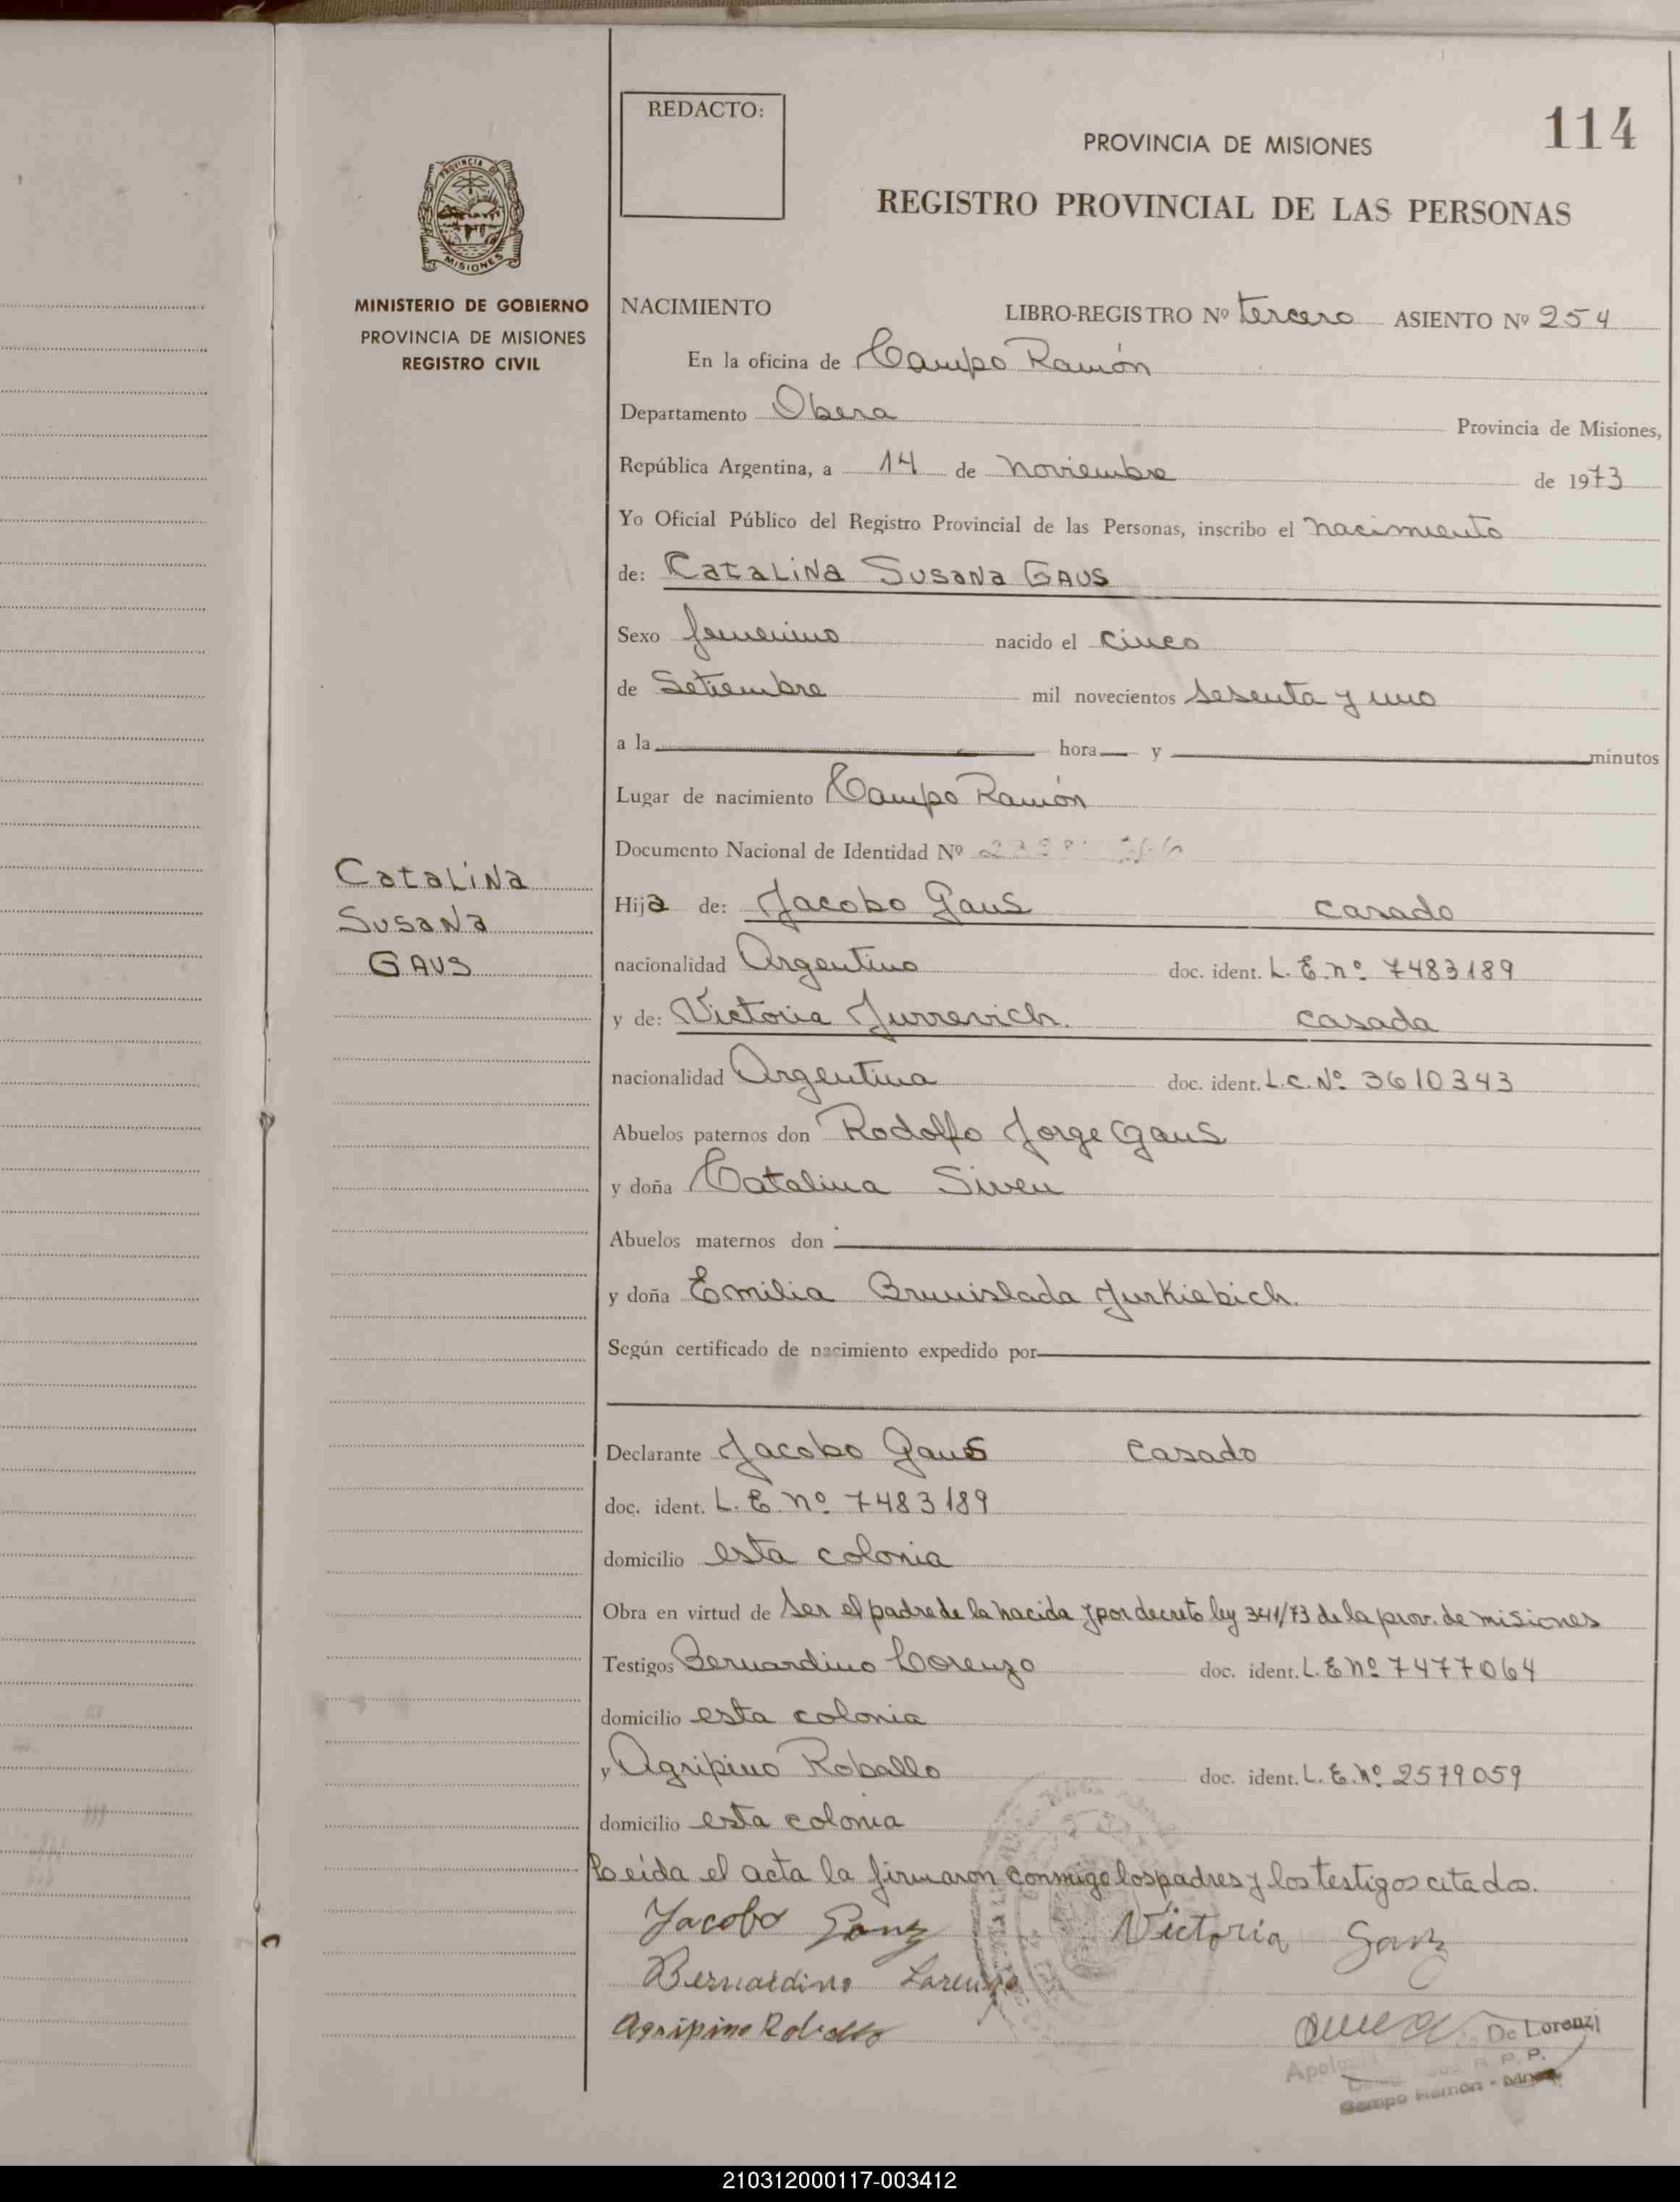 REDACTO:
114
PROVINCIA DE MISIONES
REGISTRO PROVINCIAL DE LAS PERSONAS
PROVINCIA DE
MISIONES
MINISTERIO DE GOBIERNO
PROVINCIA DE MISIONES
REGISTRO CIVIL
NACIMIENTO LIBRO-REGISTRO Nº tercero ASIENTO Nº 254
En la oficina de Campo Ramón
Departamento Obera Provincia de Misiones,
República Argentina, a 14 de noviembre de 1973
Yo Oficial Público del Registro Provincial de las Personas, inscribo el nacimiento
de: Catalina Susana GAUS
Sexo femenino nacido el cinco
de Setiembre mil novecientos sesenta y uno
a la hora y minutos
Lugar de nacimiento Campo Ramón
Documento Nacional de Identidad Nº
Catalina
Susana
GAUS
Hija de: Jacobo Gaus casado
nacionalidad Argentino doc. ident. L. E. nº 7483189
y de: Victoria Jurrevich. casada
nacionalidad Argentina doc. ident. L.C. Nº 3610343
Abuelos paternos don Rodolfo Jorge Gaus
y doña Catalina Siven
Abuelos maternos don
y doña Emilia Brunislada Jurkiebich.
Según certificado de nacimiento expedido por
Declarante Jacobo Gaus casado
doc. ident. L. E. nº 7483189
domicilio esta colonia
Obra en virtud de ser el padre de la nacida y por decreto ley 341/73 de la prov. de misiones
Testigos Bernardino Lorenzo doc. ident. L. E nº 7477064
domicilio esta colonia
y Agripino Roballo doc. ident. L. E. nº 2579059
domicilio esta colonia
Leída el acta la firmaron conmigo los padres y los testigos citados.
Jacobo Gauz Victoria Gauz
Bernardino Larenzo
Agripino Roballo
De Lorenzi
R. P. P.
Campo Ramon - Mnes
210312000117-003412